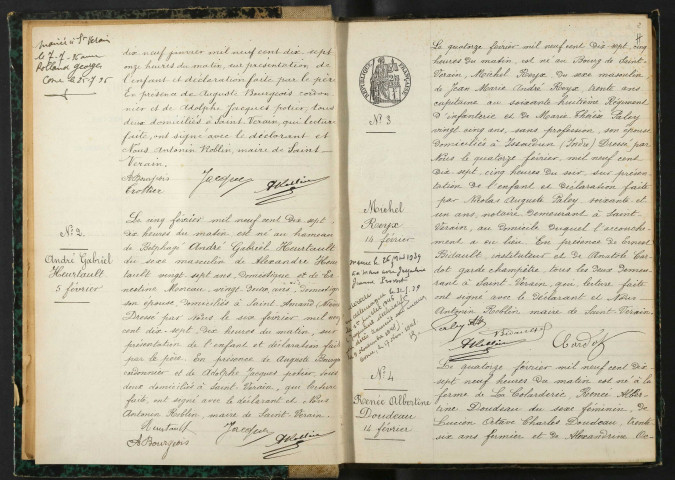 marié à St Verain
le 7-7-
Rolland georges
Cosne le 25-7-35
dix neuf janvier mil neuf cent dix sept
onze heures du matin, sur présentation de
l'enfant et déclaration faite par le père
En présence de Auguste Bourgeois cordon-
nier et de Adolphe Jacques potier, tous
deux domiciliés à Saint-Verain, qui lecture
faite, ont signé avec le déclarant et
Nous Antonin Roblin, maire de Saint-
Verain.
ABourgeois
Jacques
ARoblin
N° 2
André Gabriel
Heurtault
5 février
Le cinq février mil neuf cent dix sept
dix heures du matin est né au hameau
de André Gabriel Heurtault
du sexe masculin de Alexandre Heur-
tault vingt sept ans, domestique et de
Moreau, vingt deux ans domestique
son épouse, domiciliés à Saint Amand (Nièvre)
Dressé par Nous le six février mil neuf
cent dix-sept, dix heures du matin, sur
présentation de l'enfant et déclaration faite
par le père. En présence de Auguste Bourgeois
cordonnier et de Adolphe Jacques potier, tous
deux domiciliés à Saint-Verain, qui lecture
faite, ont signé avec le déclarant et Nous
Antonin Roblin, maire de Saint-Verain.
Heurtault
Jacques
ABourgeois
ARoblin
RÉPUBLIQUE FRANÇAISE
N° 3
Michel
Roux
14 février
Marié le 26 1939
Jeanne
Le quatorze février mil neuf cent dix-sept, cinq
heures du matin, est né au Bourg de Saint-
Verain, Michel Roux du sexe masculin
de Jean Marie André Roux trente ans
capitaine au soixante huitième Régiment
d'infanterie et de Marie Paley
vingt cinq ans, sans profession, son épouse
domiciliés à Issoudun (Indre) Dressé par
Nous le quatorze février, mil neuf cent
dix-sept, cinq heures du soir, sur présen-
tation de l'enfant et déclaration faite
par Nicolas Auguste Paley soixante et
un ans, notaire demeurant à Saint-
Verain, au domicile duquel l'accouche-
ment a eu lieu. En présence de Ernest
Bidault, instituteur et de Anatole Car-
dot garde champêtre, tous les deux demeu-
rant à Saint Verain, qui, lecture faite
ont signé avec le déclarant et Nous
Antonin Roblin maire de Saint-Verain.
Paley
Bidault
ARoblin
Cardot
N° 4
Renée Albertine
Doudeau
14 février
Le quatorze février, mil neuf cent dix
sept neuf heures du matin est né à la
ferme de La Renée Alber-
tine Doudeau du sexe féminin de
Lucien Octave Charles Doudeau, trente
six ans fermier et de Alexandrine